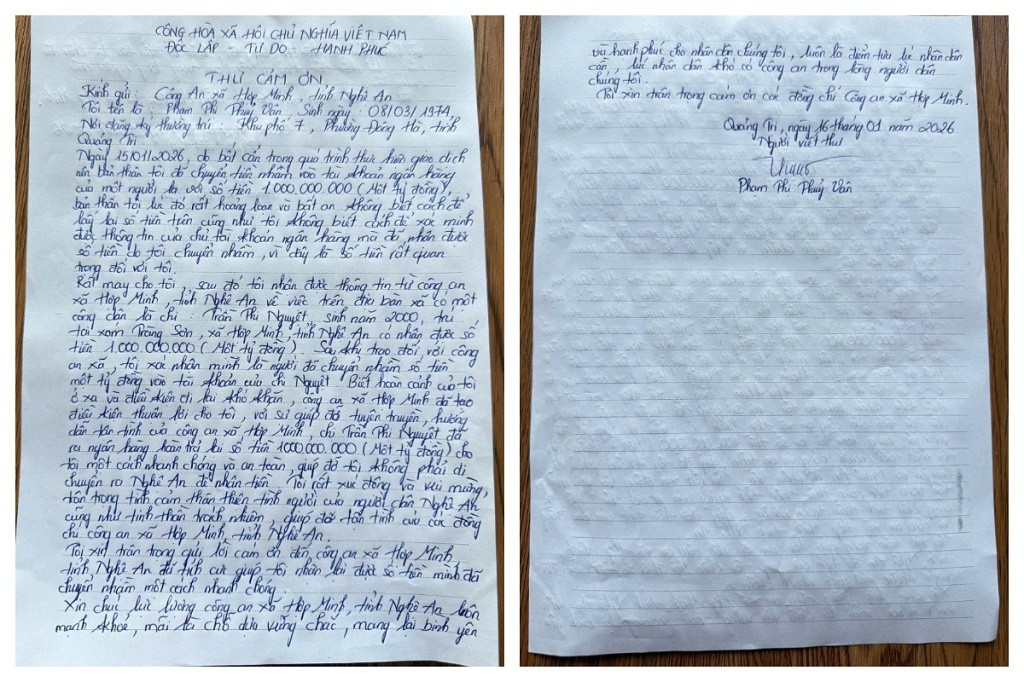 CÔNG HÒA XÃ HỘI CHỦ NGHĨA VIỆT NAM
ĐỘC LẬP - TỰ DO - HẠNH PHÚC
THƯ CẢM ƠN
Kính gửi : Công An xã Hợp Minh, tỉnh Nghệ An
Tôi tên là : Phạm Phi Thuỷ Vân. Sinh ngày : 08/03/1974,
Nơi đăng ký thường trú : Khu phố 7, Phường Đông Hà, tỉnh
Quảng Trị
Ngày 15/01/2026, do bất cẩn trong quá trình thực hiện giao dịch
nên bản thân tôi đã chuyển tiền nhầm vào tài khoản ngân hàng
của một người lạ với số tiền 1.000.000.000 (Một tỷ đồng),
bản thân tôi lúc đó rất hoảng loạn và bất an không biết cách để
lấy lại số tiền trên cũng như tôi không biết cách để xác minh
được thông tin của chủ tài khoản ngân hàng mà đã nhận được
số tiền do tôi chuyển nhầm, vì đây là số tiền rất quan
trọng đối với tôi.
Rất may cho tôi, sau đó tôi nhận được thông tin từ công an
xã Hợp Minh, tỉnh Nghệ An về việc trên địa bàn xã có một
công dân là chị : Trần Phi Nguyệt, sinh năm 2000, trú
tại xóm Tràng Sơn, xã Hợp Minh, tỉnh Nghệ An có nhận được số
tiền 1.000.000.000 (Một tỷ đồng). Sau khi trao đổi với công
an xã, tôi xác nhận mình là người đã chuyển nhầm số tiền
một tỷ đồng vào tài khoản của chị Nguyệt. Biết hoàn cảnh của tôi
ở xa và điều kiện đi lại khó khăn, công an xã Hợp Minh đã tạo
điều kiện thuận lợi cho tôi, với sự giúp đỡ tuyên truyền, hướng
dẫn tận tình của công an xã Hợp Minh, chị Trần Phi Nguyệt đã
ra ngân hàng hoàn trả lại số tiền 1000.000.000 (Một tỷ đồng) cho
tôi một cách nhanh chóng và an toàn, giúp đỡ tôi không phải di
chuyển ra Nghệ An để nhận tiền. Tôi rất xúc động và vui mừng,
trân trọng tình cảm thân thiện tình người của người dân Nghệ An
cũng như tinh thần trách nhiệm, giúp đỡ tận tình của các đồng
chí công an xã Hợp Minh, tỉnh Nghệ An.
Tôi xin trân trọng gửi lời cảm ơn đến công an xã Hợp Minh,
tỉnh Nghệ An đã tích cực giúp tôi nhận lại được số tiền mình đã
chuyển nhầm một cách nhanh chóng.
Xin chúc lực lượng công an xã Hợp Minh, tỉnh Nghệ An luôn
mạnh khoẻ, mãi là chỗ dựa vững chắc, mang lại bình yên
và hạnh phúc cho nhân dân chúng tôi, luôn là điểm tựa lúc nhân dân
cần, lúc nhân dân khó có công an trong lòng người dân
chúng tôi.
Tôi xin trân trọng cảm ơn các đồng chí Công an xã Hợp Minh.
Quảng Trị, ngày 16 tháng 01 năm 2026
Người viết thư
Phạm Phi Thuỷ Vân